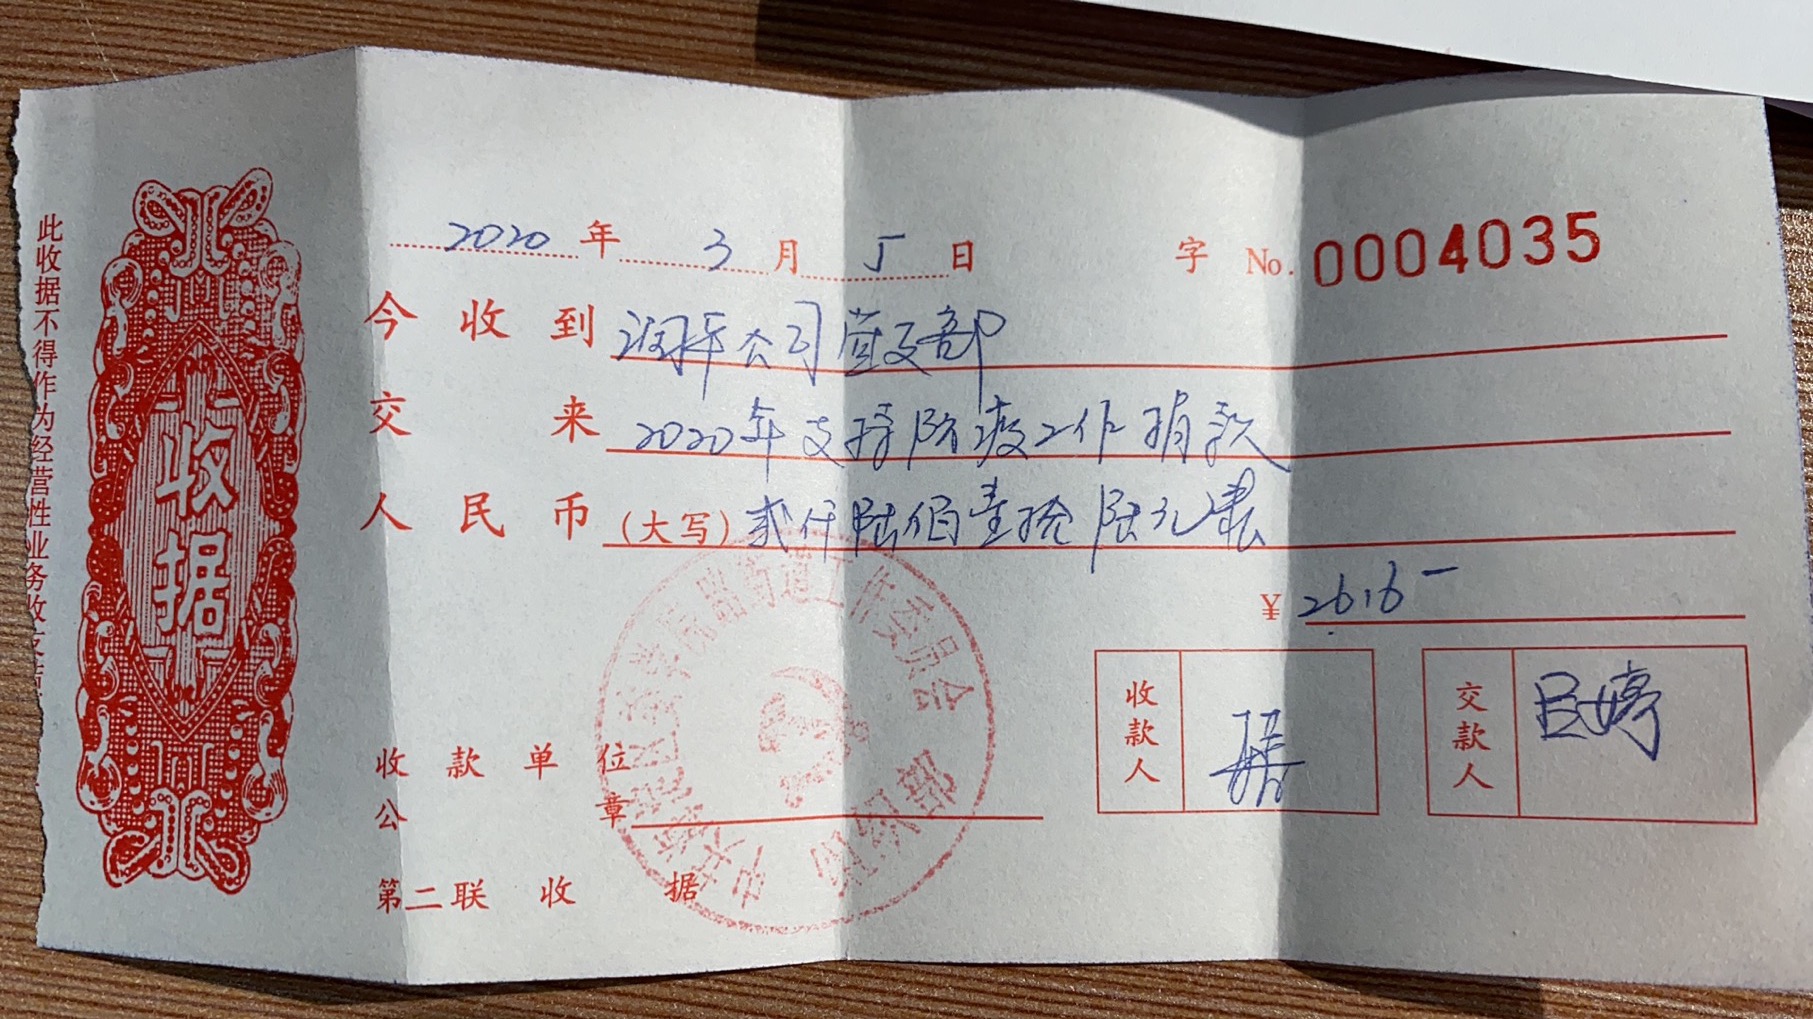 此收据不得作为经营性业务收支
收据
2020年3月5日 字 No. 0004035
今收到 润平公司党支部
交来 2020年支持防疫工作捐款
人民币(大写) 贰仟陆佰壹拾陆元整
¥ 2616-
收款单位
公章
收款人
交款人 吕婷
第二联收据
街道工作委员会
组织